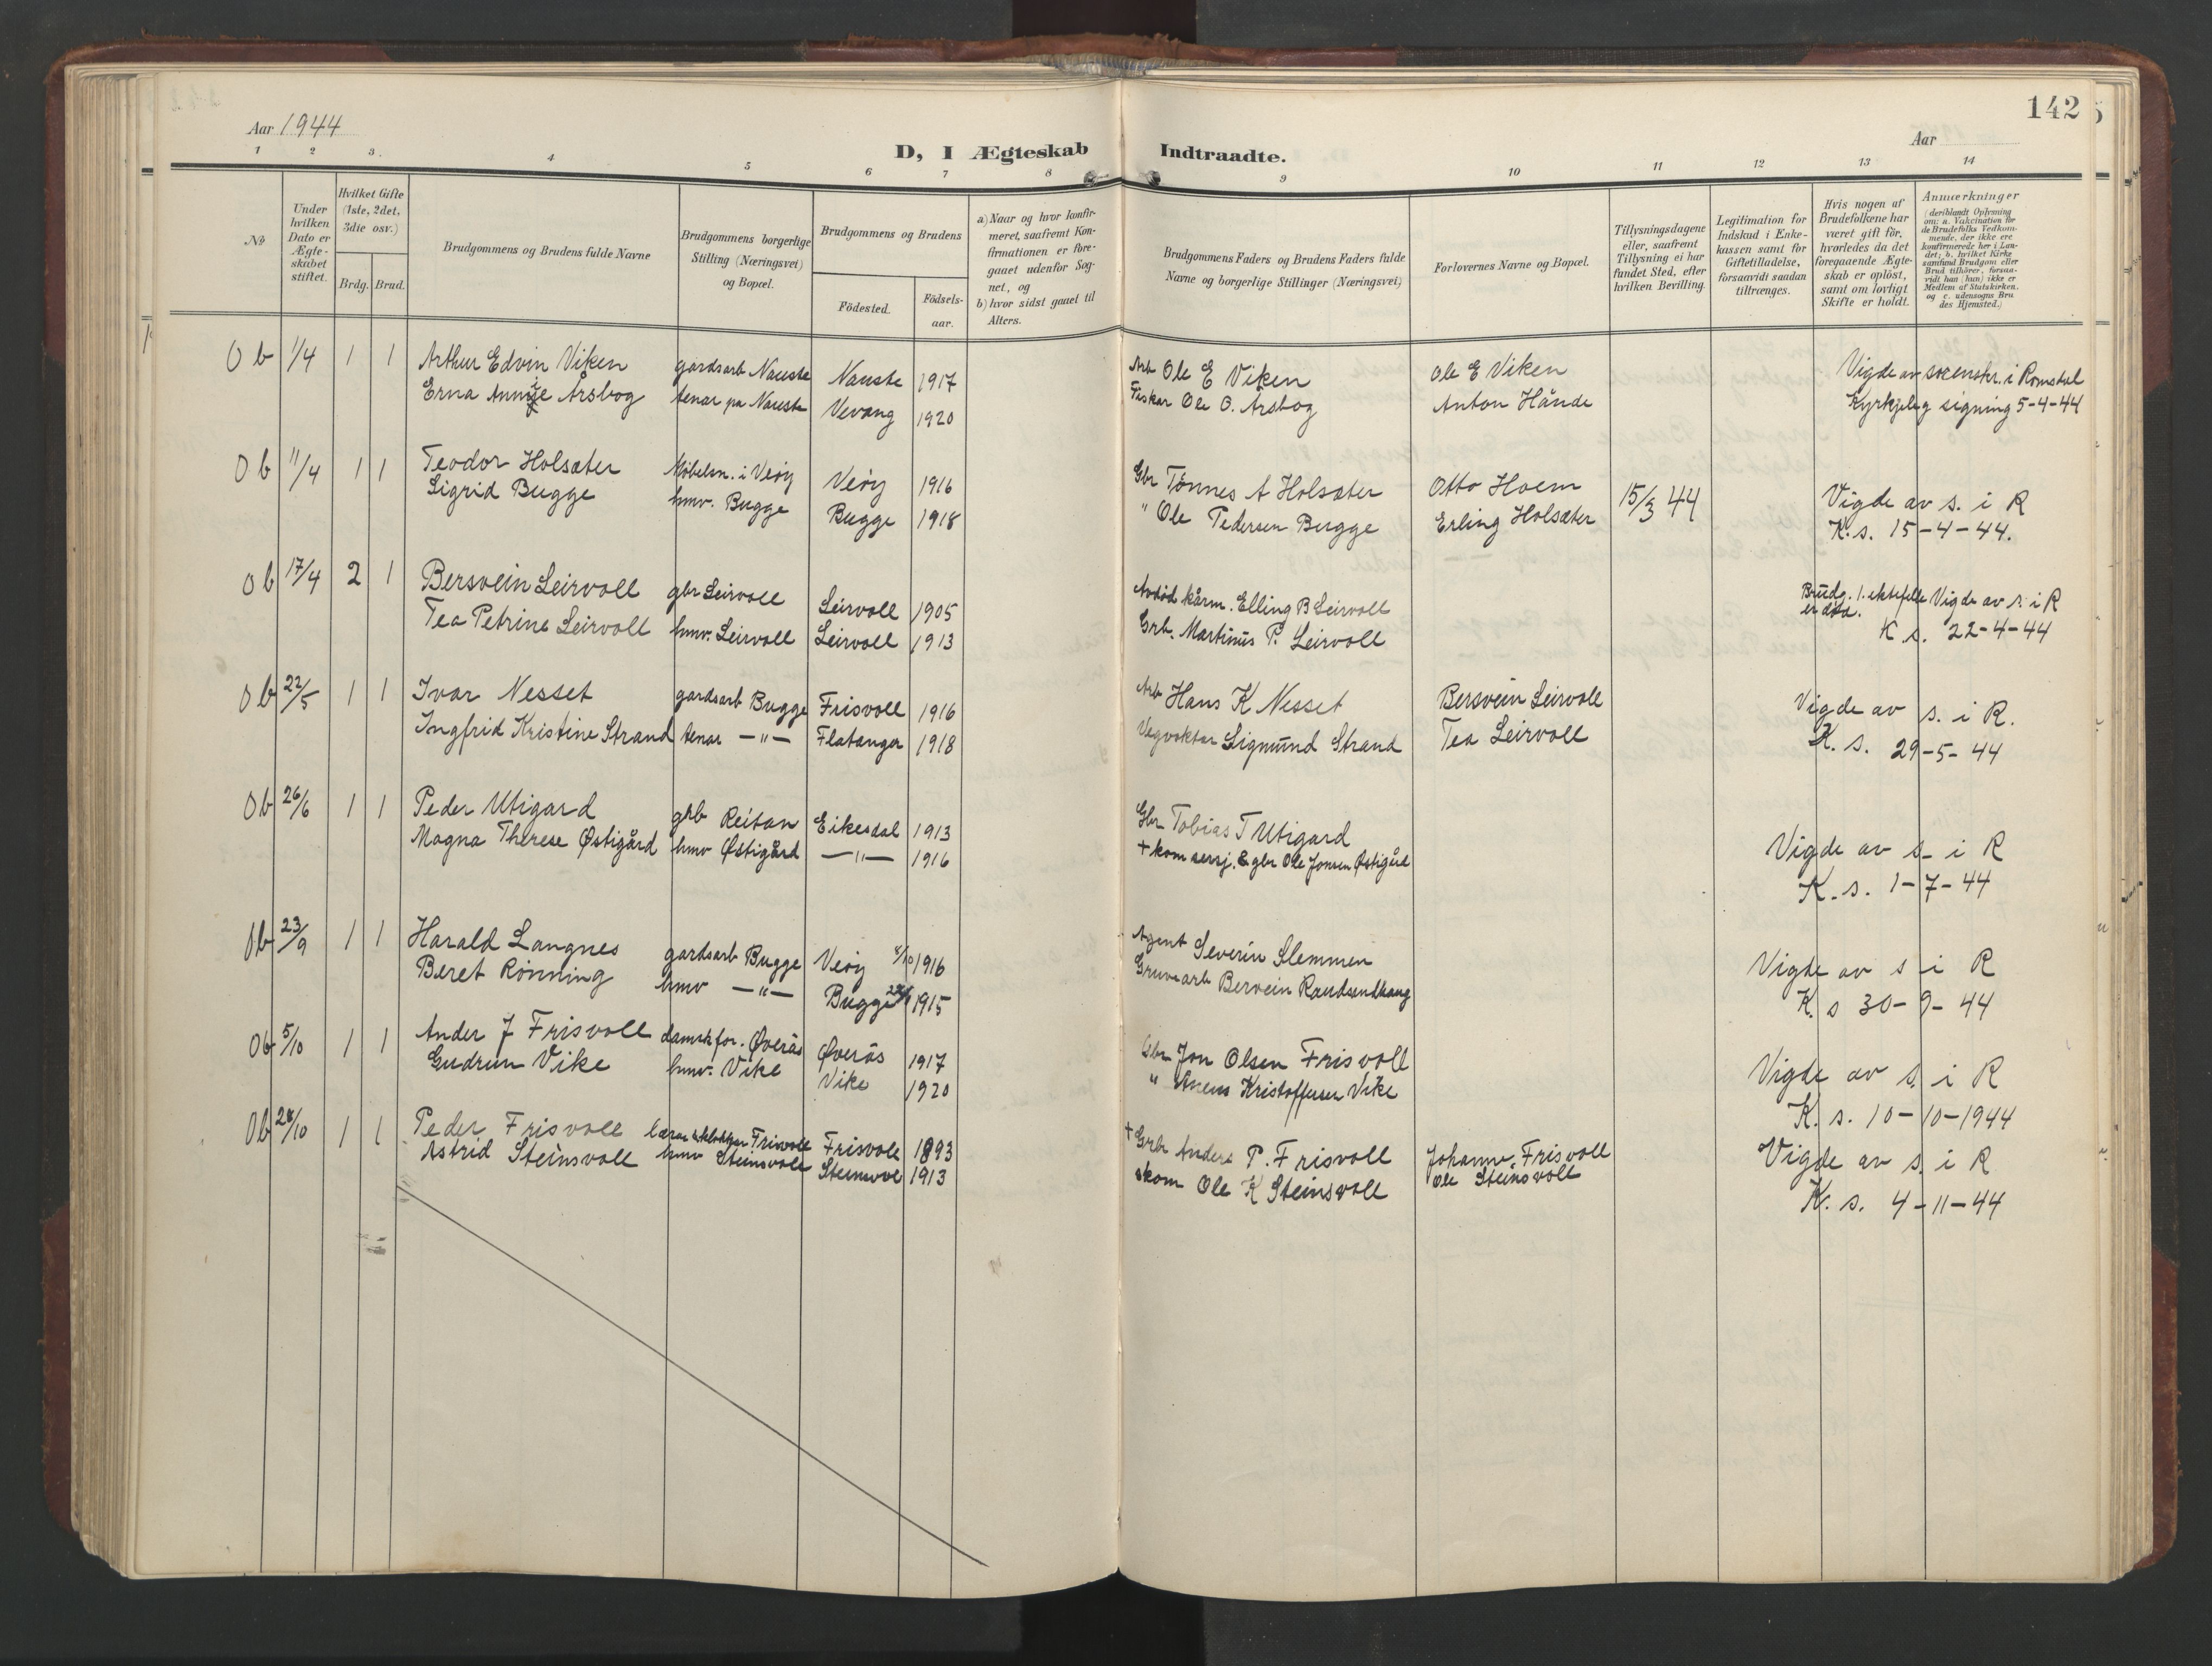 Aar 1944
D, I Ægteskab Indtraadte.
Aar
142
1 2 3. 4 5 6 7 8 9 10 11 12 13 14
№
Under hvilken Dato er Ægteskabet stiftet.
Hvilket Gifte (1ste, 2det, 3die osv.)
Brdg. Brud.
Brudgommens og Brudens fulde Navne
Brudgommens borgerlige Stilling (Næringsvei) og Bopæl.
Brudgommens og Brudens
Födested.
Födsels-aar.
a) Naar og hvor konfirmeret, saafremt Konfirmationen er foregaaet udenfor Sognet, og
b) hvor sidst gaaet til Alters.
Brudgommens Faders og Brudens Faders fulde Navne og borgerlige Stillinger (Næringsvei)
Forlovernes Navne og Bopæl.
Tillysningsdagene eller, saafremt Tillysning ei har fundet Sted, efter hvilken Bevilling.
Legitimation for Indskud i Enkekassen samt for Giftetilladelse, forsaavidt saadan tiltrænges.
Hvis nogen af Brudefolkene har været gift för, hvorledes da det foregaaende Ægteskab er oplöst, samt om lovligt Skifte er holdt.
Anmærkninger
(deriblandt Oplysning om: a. Vakcination för de Brudefolks Vedkommende, der ikke ere konfirmerede her i Landet; b. hvilket Kirkesamfund Brudgom eller Brud tilhörer, forsaavidt han (hun) ikke er Medlem af Statskirken, og c. udensogns Brudes Hjemsted.)
Ob 1/4 1 1 Arthur Edvin Viken gardsarb Nauste Nauste 1917 Arb Ole E Viken Ole E Viken Vigde av sorenskr. i Romsdal
Erna Årsbog tenar pa Nauste Vevang 1920 Fiskar Ole O. Årsbog Anton Hånde Kyrkjeleg signing 5-4-44
Ob 11/4 1 1 Teodor Holsæter Møbelsn. i Veøy Veøy 1916 Gbr Tønnes A Holsæter Otto Hoem 15/3 44 Vigde av s. i R
Sigrid Bugge hmv. Bugge Bugge 1918 " Ole Pedersen Bugge Erling Holsæter K. s. 15-4-44.
Ob 17/4 2 1 Bersvein Leirvoll gbr Leirvoll Leirvoll 1905 Avdød kårm. Elling B Leirvoll Brudg. 1. ektefelle er død. Vigde av s. i R
Tea Petrine Leirvoll hmv. Leirvoll Leirvoll 1913 Grb. Martinus P. Leirvoll K s. 22-4-44
Ob 22/5 1 1 Ivar Nesset gardsarb Bugge Frisvoll 1916 Arb Hans K Nesset Bersvein Leirvoll Vigde av s. i R.
Ingfrid Kristine Strand tenar —"— Flatanger 1918 Vegvokter Sigmund Strand Tea Leirvoll K. s. 29-5-44
Ob 26/6 1 1 Peder Utigard grb Reitan Eikesdal 1913 Gbr Tobias T Utigard Vigde av s. i R
Magna Therese Østigård hmv Østigård —"— 1916 + kom sersj. & gbr Ole Jonsen Østigård K. s. 1-7-44
Ob 23/9 1 1 Harald Langnes gardsarb Bugge Veøy 8/10 1916 Agent Severin Slemmen Vigde av s i R
Beret Rønning hmv —"— Bugge 1915 Gruvearb Bervein K. s 30-9-44
Ob 5/10 1 1 Ander J Frisvoll damskfor. Øverås Øverås 1917 Gbr Jon Olsen Frisvoll Vigde av s. i R
Gudrun Vike hmv. Vike Vike 1920 " Kristoffersen Vike K. s. 10-10-1944
Ob 28/10 1 1 Peder Frisvoll lærar & klokkar Frisvoll Frisvoll 1893 + Grb Anders P. Frisvoll Frisvoll Vigde av s. i R
Astrid Steinsvoll hmv Steinsvoll Steinsvol 1913 skom Ole K Steinsvoll Ole Steinsvoll K. s. 4-11-44